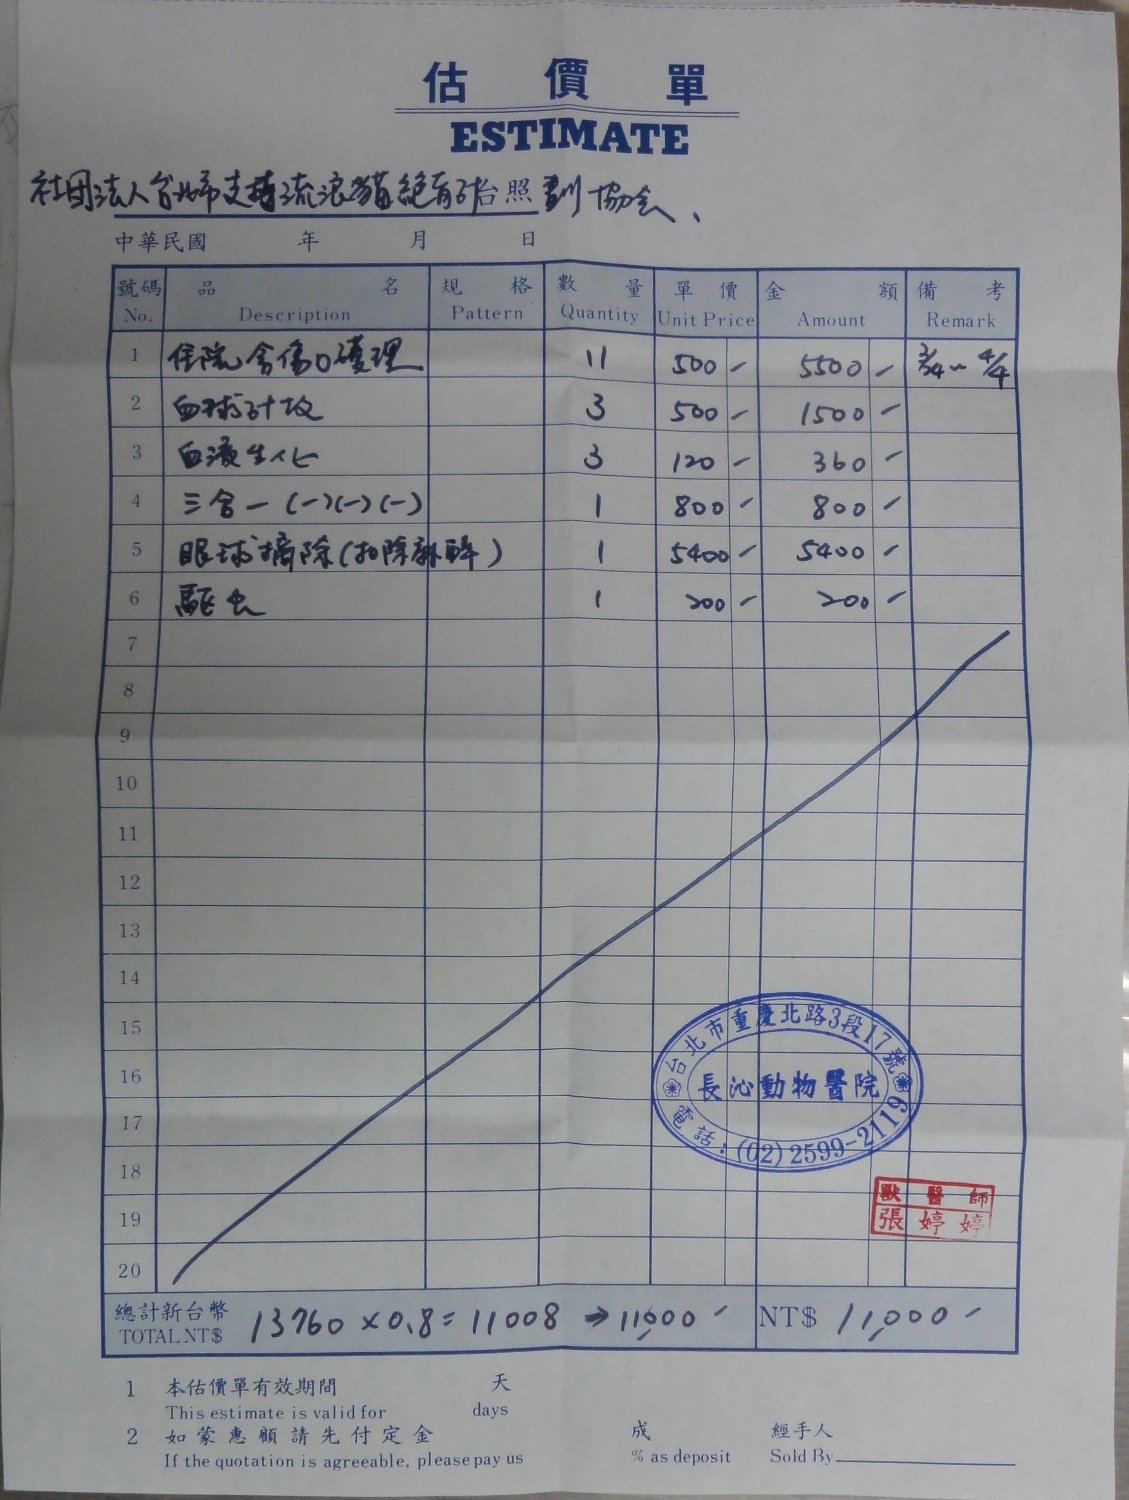 估價單
ESTIMATE
社団法人台北市支持流浪貓絕育計 台照 劃協会、
中華民國 年 月 日
號碼 品名 規格 數量 單價 金額 備考
No. Description Pattern Quantity Unit Price Amount Remark
1 住院含傷口護理 11 500 - 5500 - 3/24~4/4
2 血球計数 3 500 - 1500 -
3 血液生化 3 120 - 360 -
4 三合一(一)(一)(一) 1 800 - 800 -
5 眼球摘除(扣除麻醉) 1 5400 - 5400 -
6 驅虫 1 200 - 200 -
7
8
9
10
11
12
13
14
15
16
17
18
19
20
台北市重慶北路3段17號
長沁動物醫院
電話:(02)2599-2119
獸醫師
張婷婷
總計新台幣
TOTAL NT$ 13760×0.8=11008→11,000- NT$ 11,000-
1 本估價單有效期間 天
This estimate is valid for days
2 如蒙惠顧請先付定金 成 經手人
If the quotation is agreeable, please pay us % as deposit Sold By